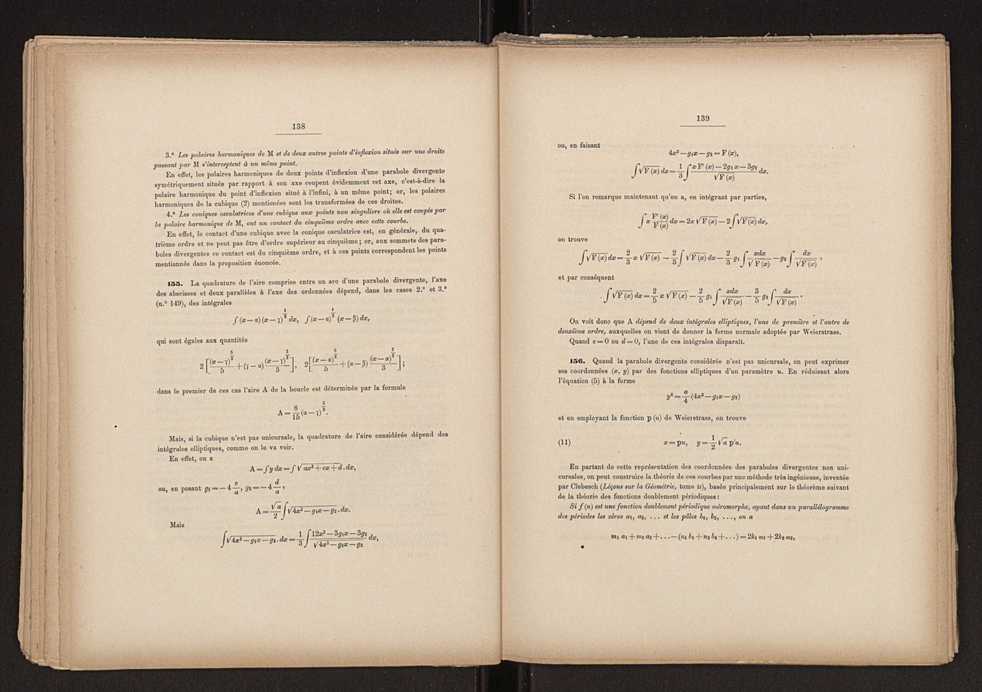 138
3.º Les polaires harmoniques de M et de deux autres points d'inflexion situés sur une droite
passant par M s'interceptent à un même point.
En effet, les polaires harmoniques de deux points d'inflexion d'une parabole divergente
symétriquement situés par rapport à son axe coupent évidemment cet axe, c'est-à-dire la
polaire harmonique du point d'inflexion situé à l'infini, à un même point; or, les polaires
harmoniques de la cubique (2) mentionnées sont les transformées de ces droites.
4.º Les coniques osculatrices d'une cubique aux points non singuliers où elle est coupée par
la polaire harmonique de M, ont un contact du cinquième ordre avec cette courbe.
En effet, le contact d'une cubique avec la conique osculatrice est, en général, du qua-
trième ordre et ne peut pas être d'ordre supérieur au cinquième; or, aux sommets des para-
boles divergentes ce contact est du cinquième ordre, et à ces points correspondent les points
mentionnés dans la proposition énoncée.
155. La quadrature de l'aire comprise entre un arc d'une parabole divergente, l'axe
des abscisses et deux parallèles à l'axe des ordonnées dépend, dans les cases 2.º et 3.º
(n.º 149), des intégrales
∫(x—α)(x—γ)^{1/2} dx, ∫(x—α)^{1/2}(x—β) dx,
qui sont égales aux quantités
2[(x—γ)^{5/2}/5 + (γ—α)(x—γ)^{3/2}/3], 2[(x—α)^{5/2}/5 + (α—β)(x—α)^{3/2}/3];
dans le premier de ces cas l'aire A de la boucle est déterminée par la formule
A = 8/15 (α—γ)^{5/2}.
Mais, si la cubique n'est pas unicursale, la quadrature de l'aire considérée dépend des
intégrales elliptiques, comme on le va voir.
En effet, on a
A = ∫y dx = ∫√(ax³+cx+d) . dx,
ou, en posant g₂ = —4 c/a, g₃ = —4 d/a,
A = √a/2 ∫√(4x³—g₂x—g₃) . dx.
Mais
∫√(4x³—g₂x—g₃) . dx = 1/3 ∫ (12x³—3g₂x—3g₃)/√(4x³—g₂x—g₃) dx,
139
ou, en faisant
4x³—g₂x—g₃ = F(x),
∫√F(x) dx = 1/3 ∫ (xF'(x)—2g₂x—3g₃)/√F(x) dx.
Si l'on remarque maintenant qu'on a, en intégrant par parties,
∫x F'(x)/√F(x) dx = 2x√F(x) — 2∫√F(x) dx,
on trouve
∫√F(x) dx = 2/3 x√F(x) — 2/3 ∫√F(x) dx — 2/3 g₂ ∫ xdx/√F(x) — g₃ ∫ dx/√F(x),
et par conséquent
∫√F(x) dx = 2/5 x√F(x) — 2/5 g₂ ∫ xdx/√F(x) — 3/5 g₃ ∫ dx/√F(x).
On voit donc que A dépend de deux intégrales elliptiques, l'une de première et l'autre de
deuxième ordre, auxquelles on vient de donner la forme normale adoptée par Weierstrass.
Quand c = 0 ou d = 0, l'une de ces intégrales disparaît.
156. Quand la parabole divergente considérée n'est pas unicursale, on peut exprimer
ses coordonnées (x, y) par des fonctions elliptiques d'un paramètre u. En réduisant alors
l'équation (5) à la forme
y² = a/4 (4x³—g₂x—g₃)
et en employant la fonction p(u) de Weierstrass, on trouve
(11) x = pu, y = 1/2 √a p'u.
En partant de cette représentation des coordonnées des paraboles divergentes non uni-
cursales, on peut construire la théorie de ces courbes par une méthode très ingénieuse, inventée
par Clebsch (Leçons sur la Géométrie, tome II), basée principalement sur le théorème suivant
de la théorie des fonctions doublement périodiques:
Si f(u) est une fonction doublement périodique méromorphe, ayant dans un parallélogramme
des périodes les zéros a₁, a₂, ... et les pôles b₁, b₂, ..., on a
m₁a₁+m₂a₂+...—(n₁b₁+n₂b₂+...) = 2k₁ω₁+2k₂ω₂,